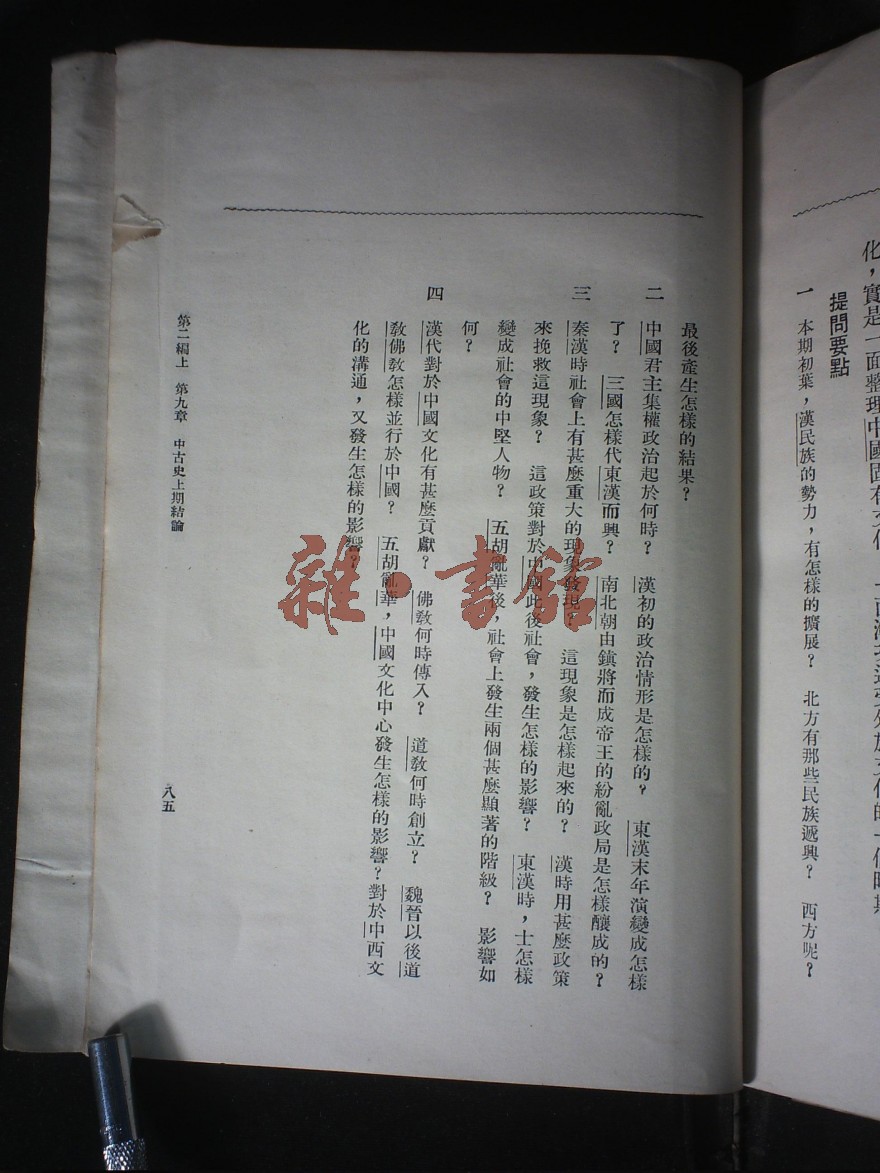 化，實是一面整理中國固有文化，一面
提問要點
一　本期初葉，漢民族的勢力，有怎樣的擴展？　北方有那些民族遞興？　西方呢？
最後產生怎樣的結果？
二　中國君主集權政治起於何時？　漢初的政治情形是怎樣的？　東漢末年演變成怎樣
了？　三國怎樣代東漢而興？　南北朝由鎮將而成帝王的紛亂政局是怎樣釀成的？
三　秦漢時社會上有甚麼重大的現象發現？　這現象是怎樣起來的？　漢時用甚麼政策
來挽救這現象？　這政策對於中國此後社會，發生怎樣的影響？　東漢時，士怎樣
變成社會的中堅人物？　五胡亂華後，社會上發生兩個甚麼顯著的階級？　影響如
何？
四　漢代對於中國文化有甚麼貢獻？　佛敎何時傳入？　道敎何時創立？　魏晉以後道
敎佛敎怎樣並行於中國？　五胡亂華，中國文化中心發生怎樣的影響？對於中西文
化的溝通，又發生怎樣的影響？
第二編上　第九章　中古史上期結論
八五
雜·書館